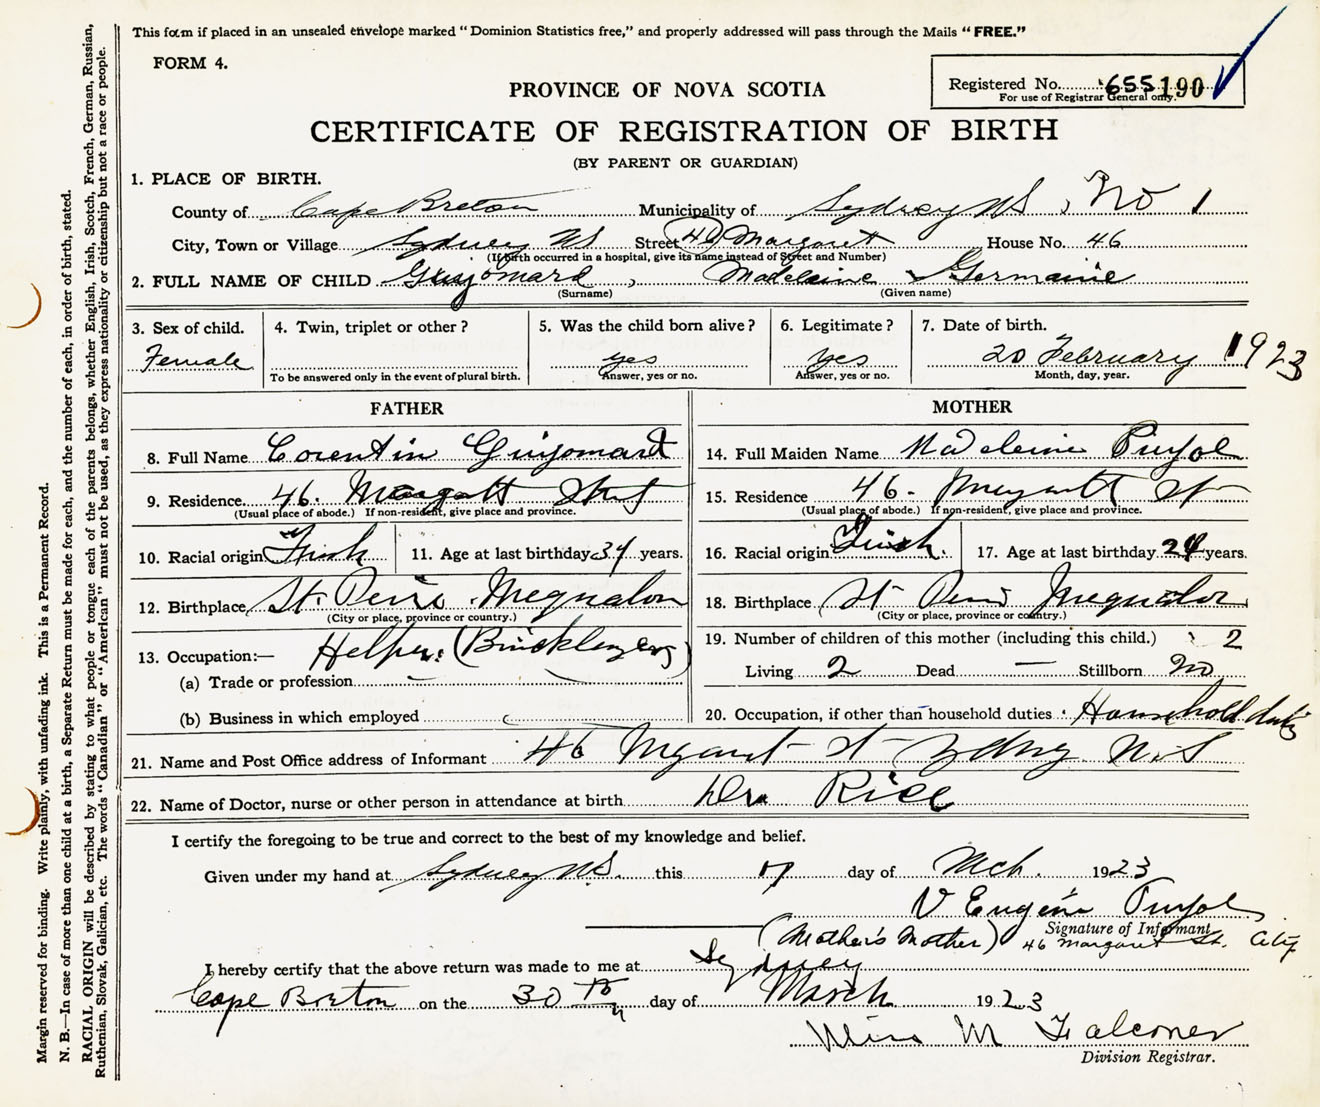 This form if placed in an unsealed envelope marked "Dominion Statistics free," and properly addressed will pass through the Mails "FREE."
FORM 4.
Registered No. 655190
For use of Registrar General only.
PROVINCE OF NOVA SCOTIA
CERTIFICATE OF REGISTRATION OF BIRTH
(BY PARENT OR GUARDIAN)
1. PLACE OF BIRTH.
County of Cape Breton Municipality of Sydney NS, No 1
City, Town or Village Sydney NS Street 46 Margaret House No. 46
(If birth occurred in a hospital, give its name instead of Street and Number)
2. FULL NAME OF CHILD Guyomard, Madeleine Germaine
(Surname) (Given name)
3. Sex of child. 4. Twin, triplet or other? 5. Was the child born alive? 6. Legitimate? 7. Date of birth.
Female yes yes 20 February 1923
To be answered only in the event of plural birth. Answer, yes or no. Answer, yes or no. Month, day, year.
FATHER MOTHER
8. Full Name Corentin Guyomard 14. Full Maiden Name Madeleine
9. Residence 46. Street 15. Residence 46. St
(Usual place of abode.) If non-resident, give place and province. (Usual place of abode.) If non-resident, give place and province.
10. Racial origin 11. Age at last birthday 34 years. 16. Racial origin 17. Age at last birthday years.
12. Birthplace St. Megualon 18. Birthplace St
(City or place, province or country.) (City or place, province or country.)
13. Occupation:— Helper (Bricklayers) 19. Number of children of this mother (including this child.) 2
(a) Trade or profession Living 2 Dead — Stillborn no
(b) Business in which employed 20. Occupation, if other than household duties Household duties
21. Name and Post Office address of Informant 46 St Sydney N.S
22. Name of Doctor, nurse or other person in attendance at birth Dr. Rice
I certify the foregoing to be true and correct to the best of my knowledge and belief.
Given under my hand at Sydney NS. this 17 day of Mch. 1923
V Eugenie
Signature of Informant
(Mother's Mother) 46 Margaret St. City
I hereby certify that the above return was made to me at Sydney
Cape Breton on the 30th day of March 1923
Miss M Falconer
Division Registrar.
Margin reserved for binding. Write plainly, with unfading ink. This is a Permanent Record.
N. B.—In case of more than one child at a birth, a Separate Return must be made for each, and the number of each, in order of birth, stated.
RACIAL ORIGIN will be described by stating to what people or tongue each of the parents belongs, whether English, Irish, Scotch, French, German, Russian,
Ruthenian, Slovak, Galician, etc. The words "Canadian" or "American" must not be used, as they express nationality or citizenship but not a race or people.